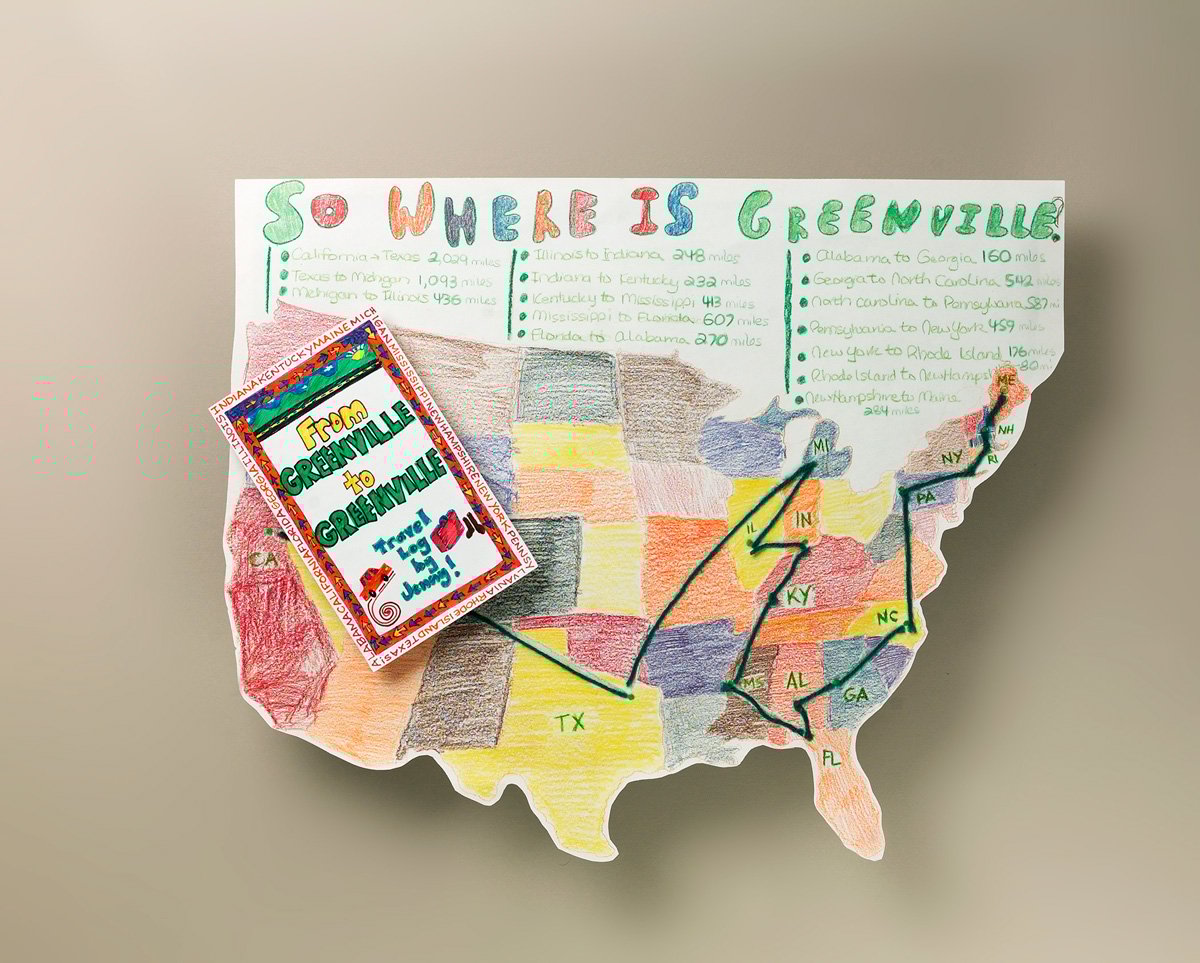 SO WHERE IS GREENVILLE?
California → Texas 2,029 miles
Texas to Mehigan 1,093 miles
Mehigan to Illinois 436 miles
Illinois to Indiana 248 miles
Indiana to Kentucky 232 miles
Kentucky to Mississippi 413 miles
Mississippi to Florida 607 miles
Florida to Alabama 270 miles
Alabama to Georgia 160 miles
Georgia to North Carolina 542 miles
North Carolina to Pennsylvania 587 mi
Pennsylvania to New York 459 miles
New York to Rhode Island 176 miles
Rhode Island to NewHampsh 80 mi
New Hampshire to Maine
284 miles
INDIANA KENTUCKY MAINE MICHIGAN MISSISSIPPI NEW HAMPSHIRE NEW YORK PENNSYLVANIA RHODE ISLAND TEXAS
ALABAMA CALIFORNIA FLORIDA GEORGIA ILLINOIS
From
GREENVILLE
to
GREENVILLE
Travel
Log
by
Jenny!
ME
NH
RI
NY
PA
MI
IL
IN
CA
KY
NC
MS
AL
GA
TX
FL